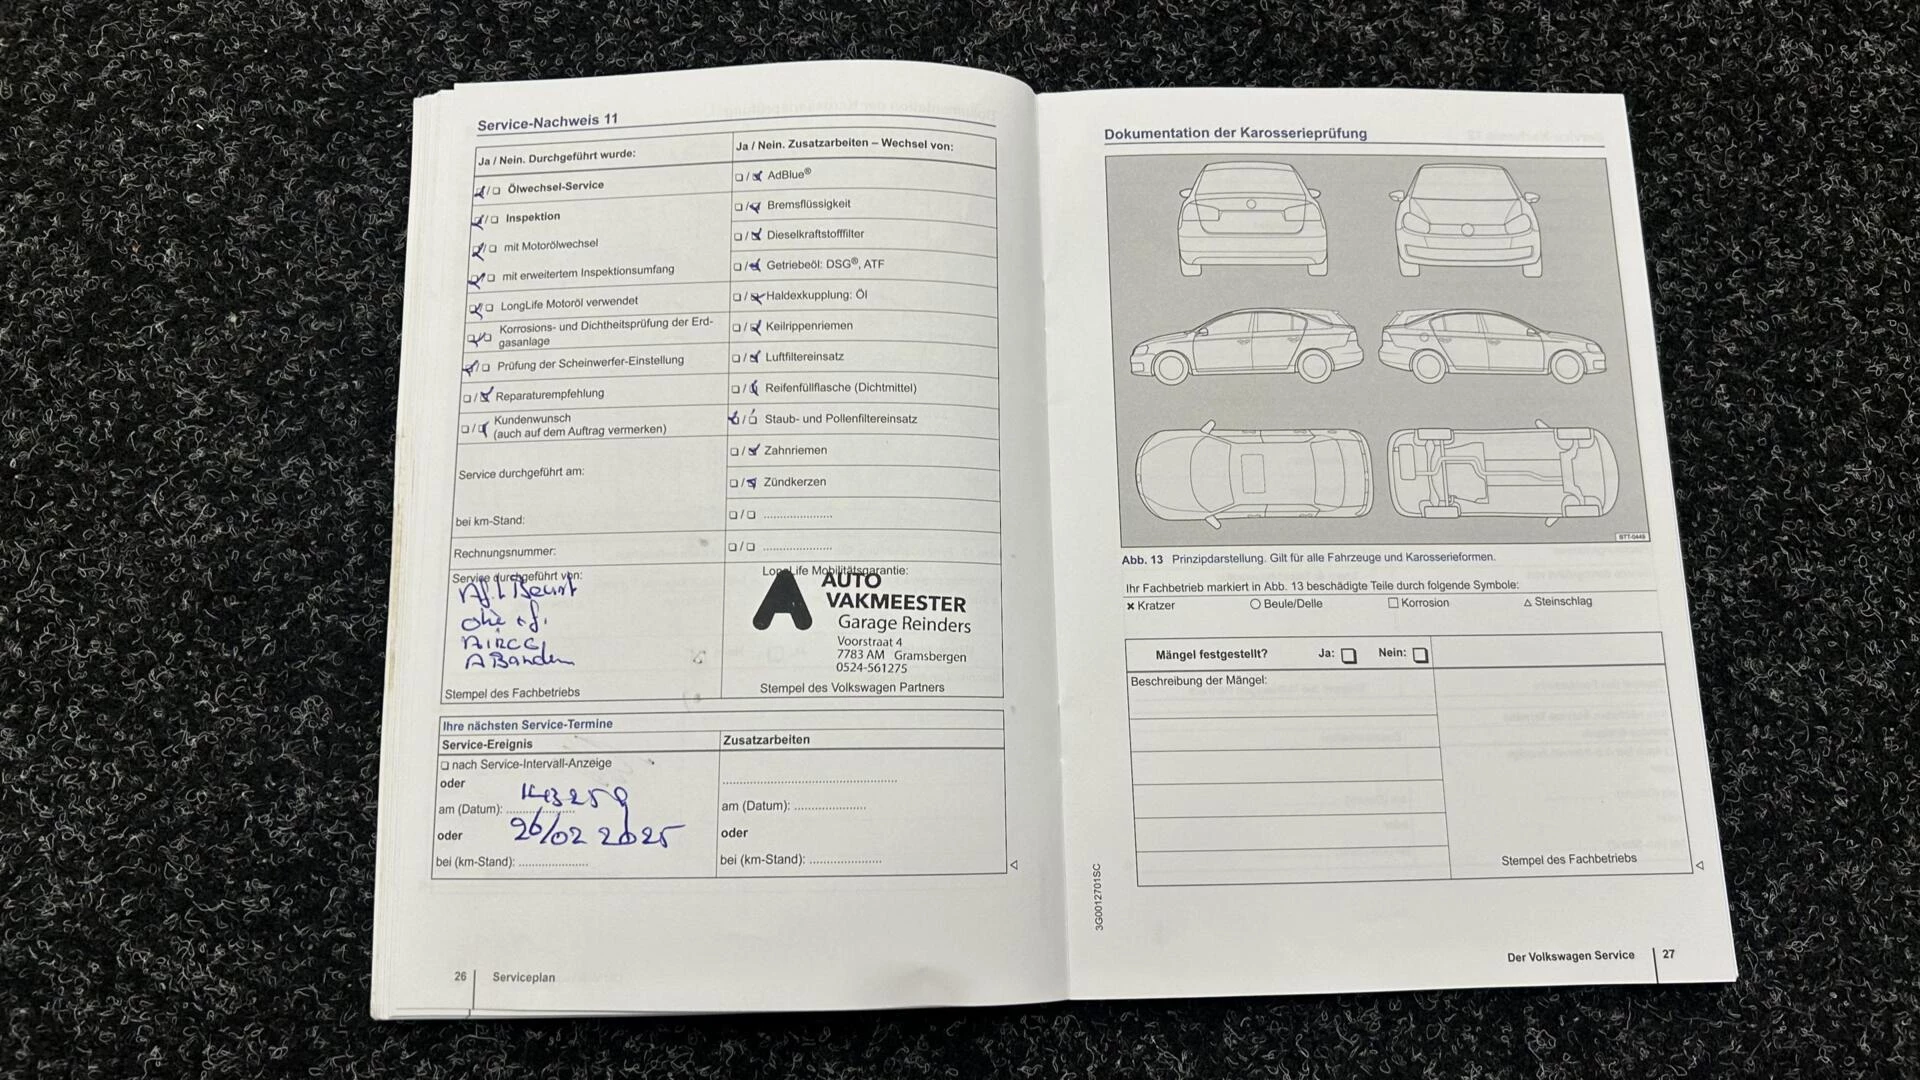 Service-Nachweis 11
Ja / Nein. Durchgeführt wurde:
Ölwechsel-Service
Inspektion
mit Motorölwechsel
mit erweitertem Inspektionsumfang
LongLife Motoröl verwendet
Korrosions- und Dichtheitsprüfung der Erd-
gasanlage
Prüfung der Scheinwerfer-Einstellung
Reparaturempfehlung
Kundenwunsch
(auch auf dem Auftrag vermerken)
Service durchgeführt am:
bei km-Stand:
Rechnungsnummer:
Service durchgeführt von:
AIRCO
Stempel des Fachbetriebs
Ja / Nein. Zusatzarbeiten – Wechsel von:
AdBlue®
Bremsflüssigkeit
Dieselkraftstofffilter
Getriebeöl: DSG®, ATF
Haldexkupplung: Öl
Keilrippenriemen
Luftfiltereinsatz
Reifenfüllflasche (Dichtmittel)
Staub- und Pollenfiltereinsatz
Zahnriemen
Zündkerzen
LongLife Mobilitätsgarantie:
AUTO
VAKMEESTER
Garage Reinders
Voorstraat 4
7783 AM Gramsbergen
0524-561275
Stempel des Volkswagen Partners
Ihre nächsten Service-Termine
Service-Ereignis
nach Service-Intervall-Anzeige
oder
am (Datum):
oder
26/02 2025
bei (km-Stand):
Zusatzarbeiten
am (Datum):
oder
bei (km-Stand):
26 Serviceplan
Dokumentation der Karosserieprüfung
Abb. 13 Prinzipdarstellung. Gilt für alle Fahrzeuge und Karosserieformen.
Ihr Fachbetrieb markiert in Abb. 13 beschädigte Teile durch folgende Symbole:
Kratzer Beule/Delle Korrosion Steinschlag
Mängel festgestellt? Ja: Nein:
Beschreibung der Mängel:
Stempel des Fachbetriebs
3G0012701SC
Der Volkswagen Service 27